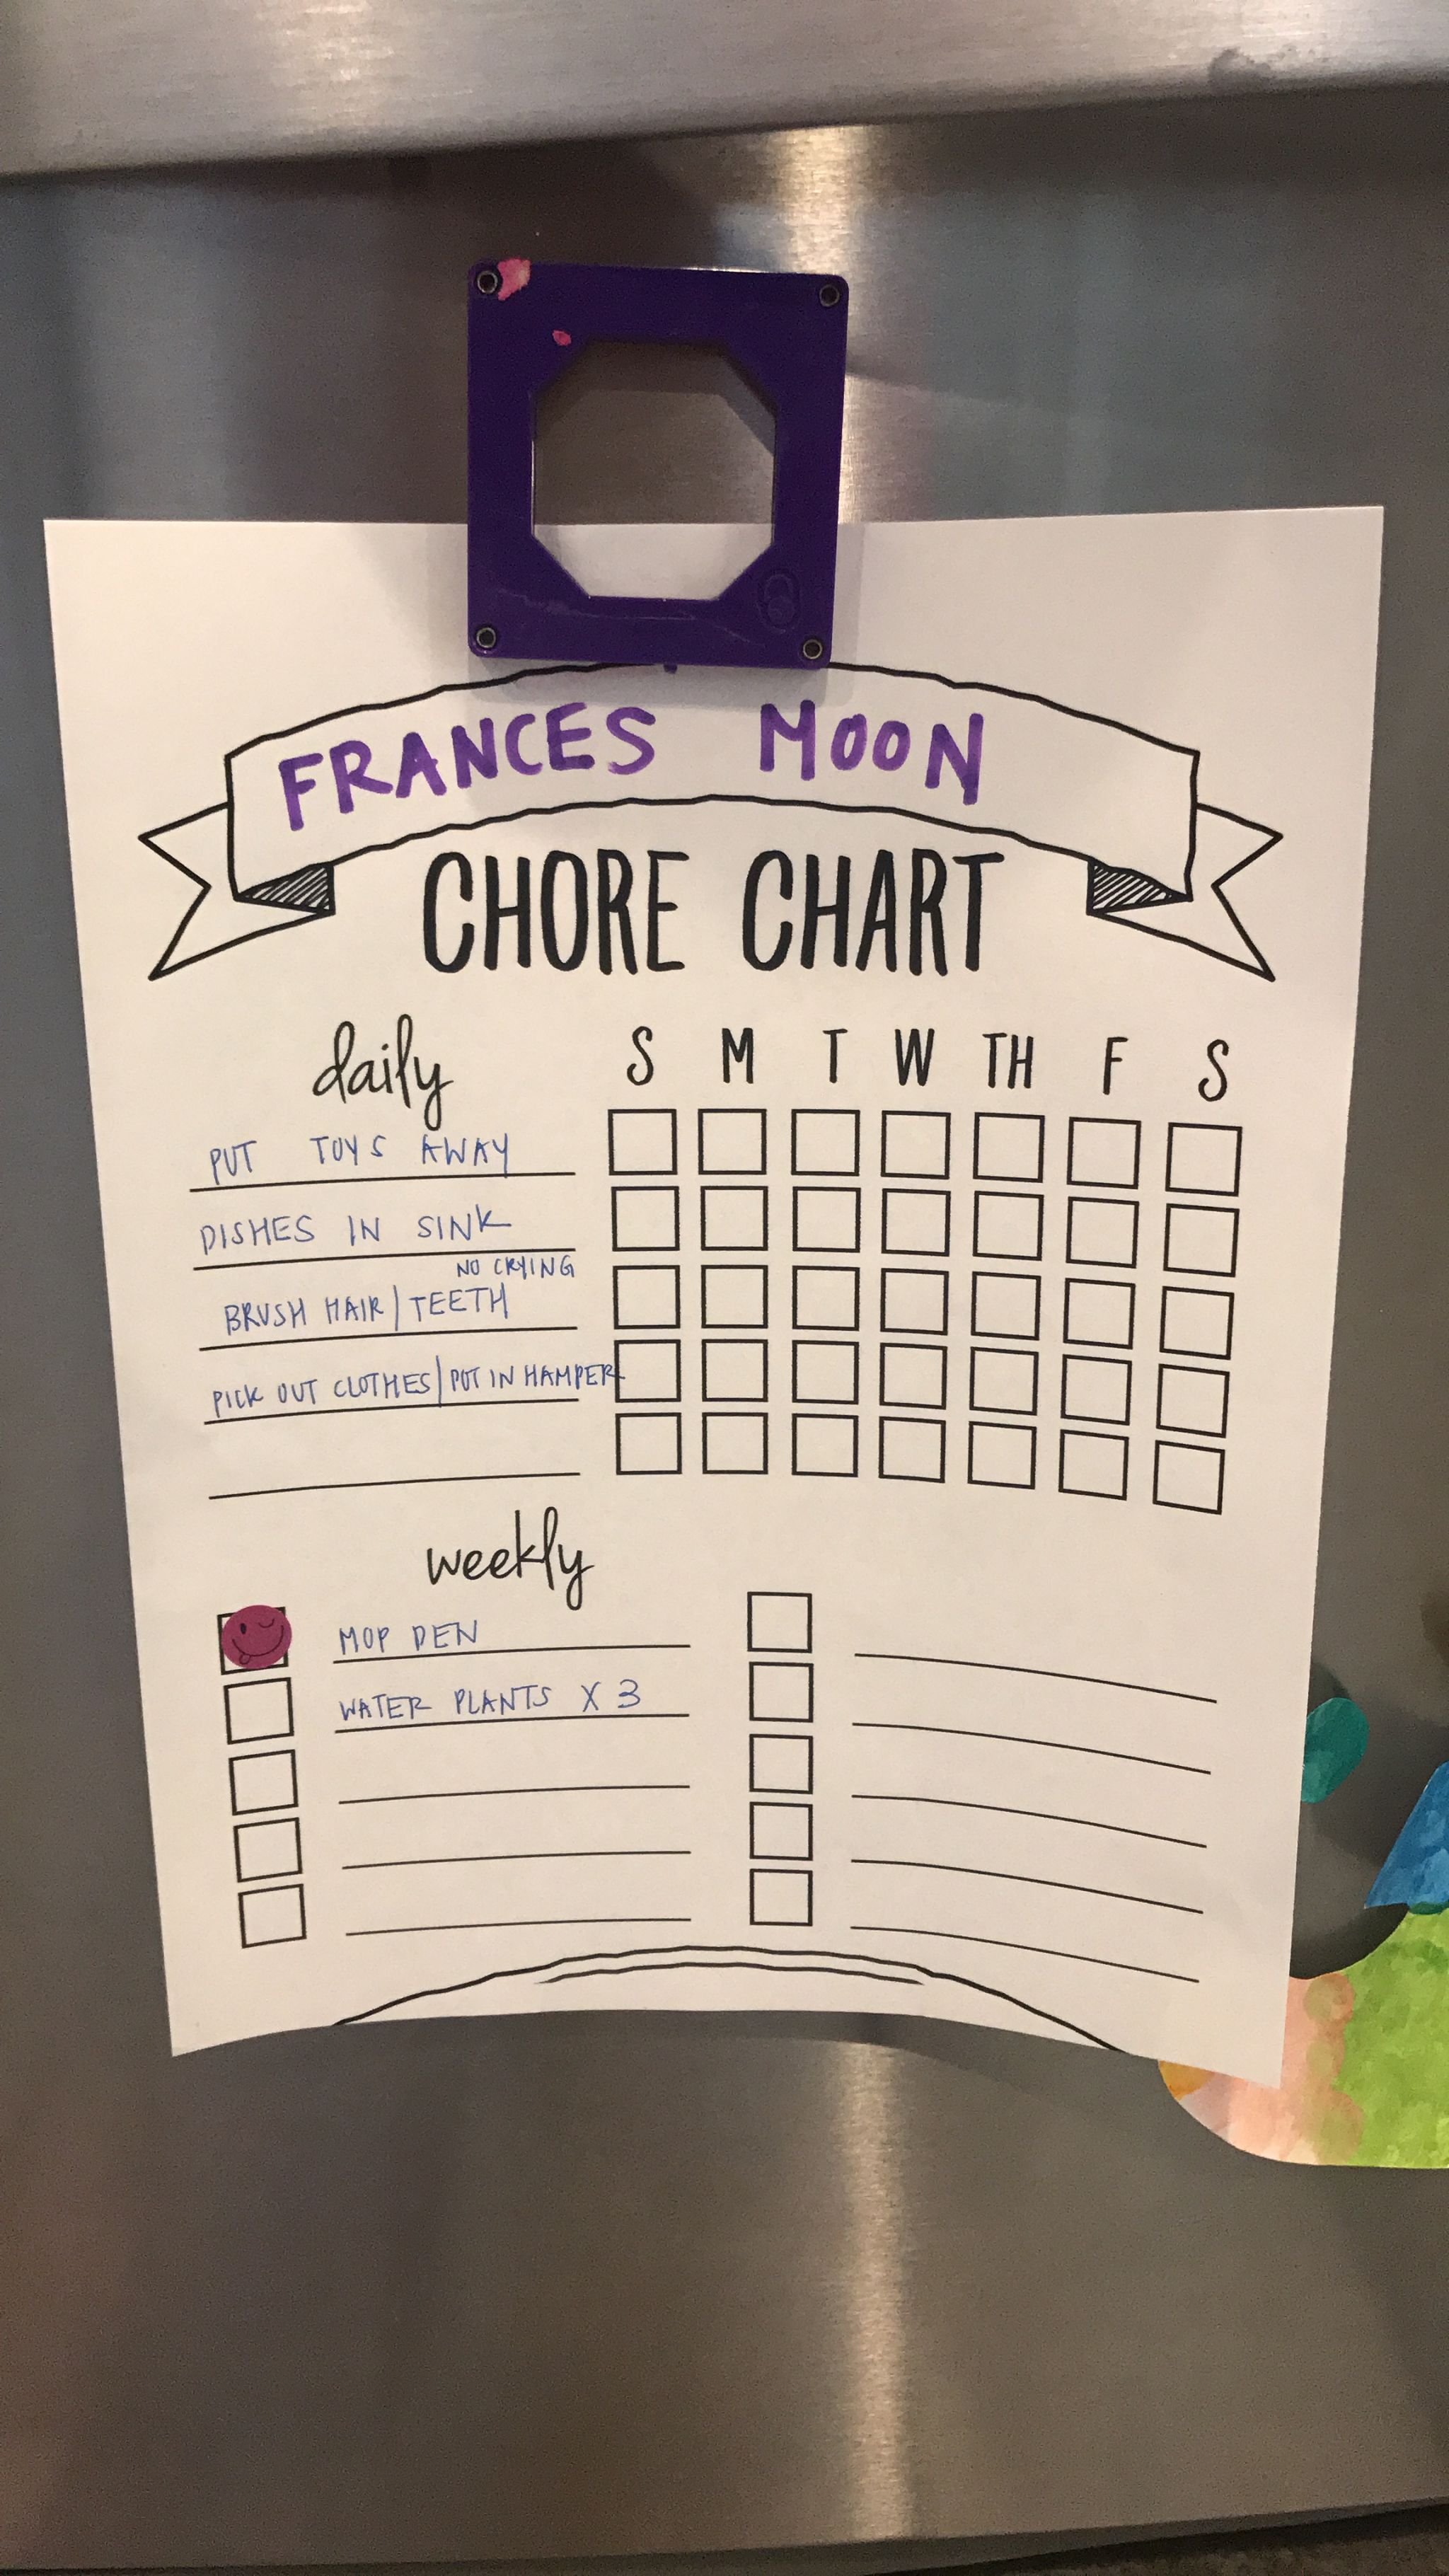 FRANCES MOON
CHORE CHART
daily S M T W TH F S
PUT TOYS AWAY
DISHES IN SINK
NO CRYING
BRUSH HAIR/TEETH
PICK OUT CLOTHES/PUT IN HAMPER
weekly
MOP DEN
WATER PLANTS X 3